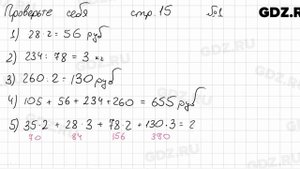 Проверьте себя стр. 15 №1 GDZ.RU
1) 28·2 = 56 руб
2) 234 : 78 = 3 кг
3) 260 : 2 = 130 руб
4) 105 + 56 + 234 + 260 = 655 руб
5) 35·2 + 28·3 + 78·2 + 130·3 = 2
70 84 156 390
GDZ.RU